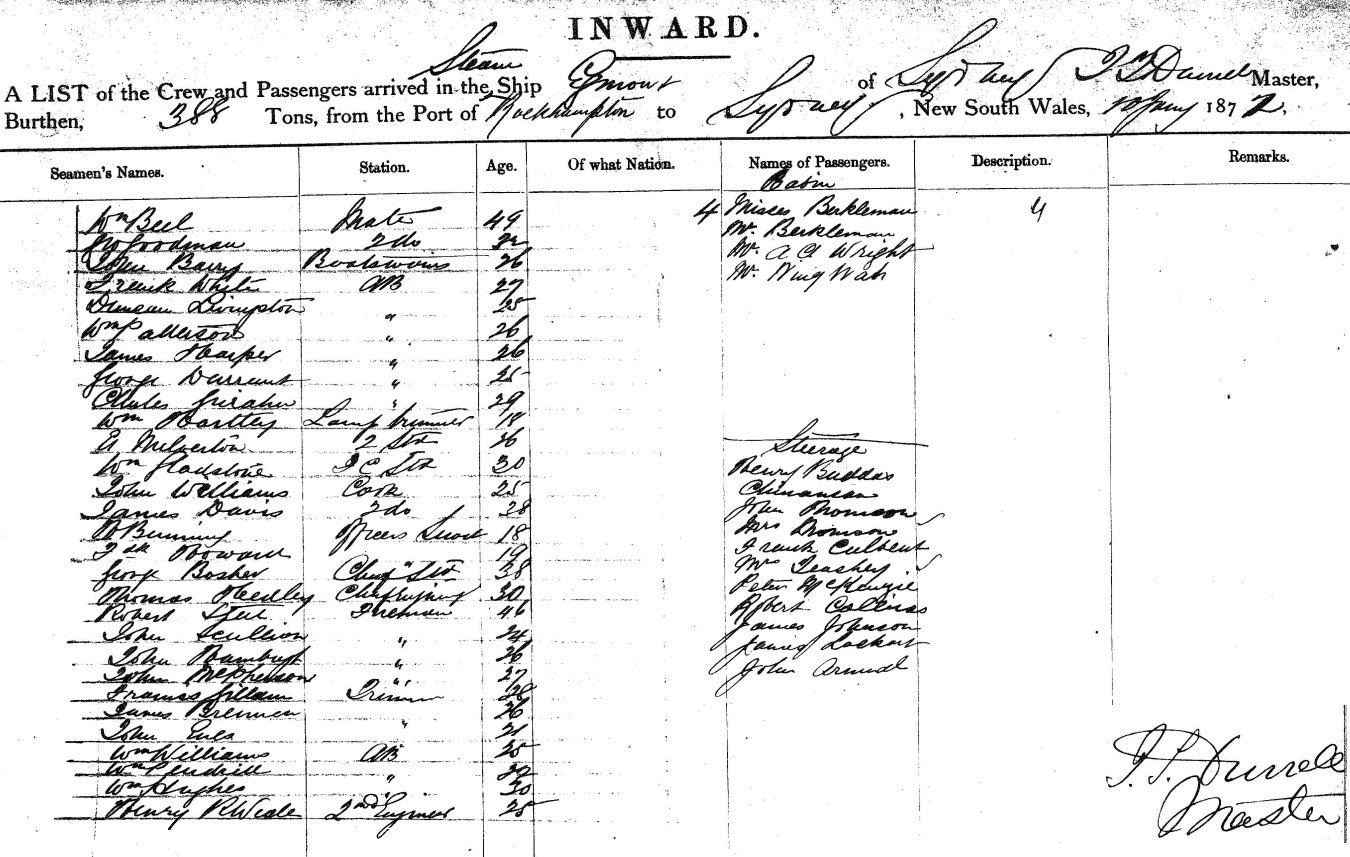 INWARD.
Steam
A LIST of the Crew and Passengers arrived in the Ship Egmont of Sydney Master,
Burthen, 388 Tons, from the Port of Rockhampton to Sydney, New South Wales, 1872.
Seamen's Names. Station. Age. Of what Nation. Names of Passengers. Description. Remarks.
Cabin
Wm Bell Mate 49 4 Misses Berkleman 4
Goodman 2 do Mr. Berkleman
John Barry Boatswain 26 Mr. A Wright
Frank White AB 27 Mr. Wing Wah
Duncan Livingston " 25
Wm Patterson " 26
James Harper " 26
George Durrant " 25
" 29
Wm Hartley Lamp trimmer 18
E Milverton 2 Std 26 Steerage
Wm Gladstone Std 30 Henry Buddas
John Williams Cook 25 Chinaman
James Davis 2 do 28 John Thomson
Bunning Officers Servt 18 Mrs Thomson
Howard " 19 Frank Culbert
George Bosher Chief Std 38 Mrs
Thomas Hedley Chief Engineer 30 Peter McKenzie
Robert Fireman 46 Robert Collins
John Scullion " 24 James Johnson
John " 26 James Lockhart
John McPherson " 27 John
Francis Gillam Trimmer 28
James Brennan 26
John " 21
Wm Williams AB 25
Wm Pendrill "
Wm Hughes " 30
Henry R 2nd Engineer 25
Master